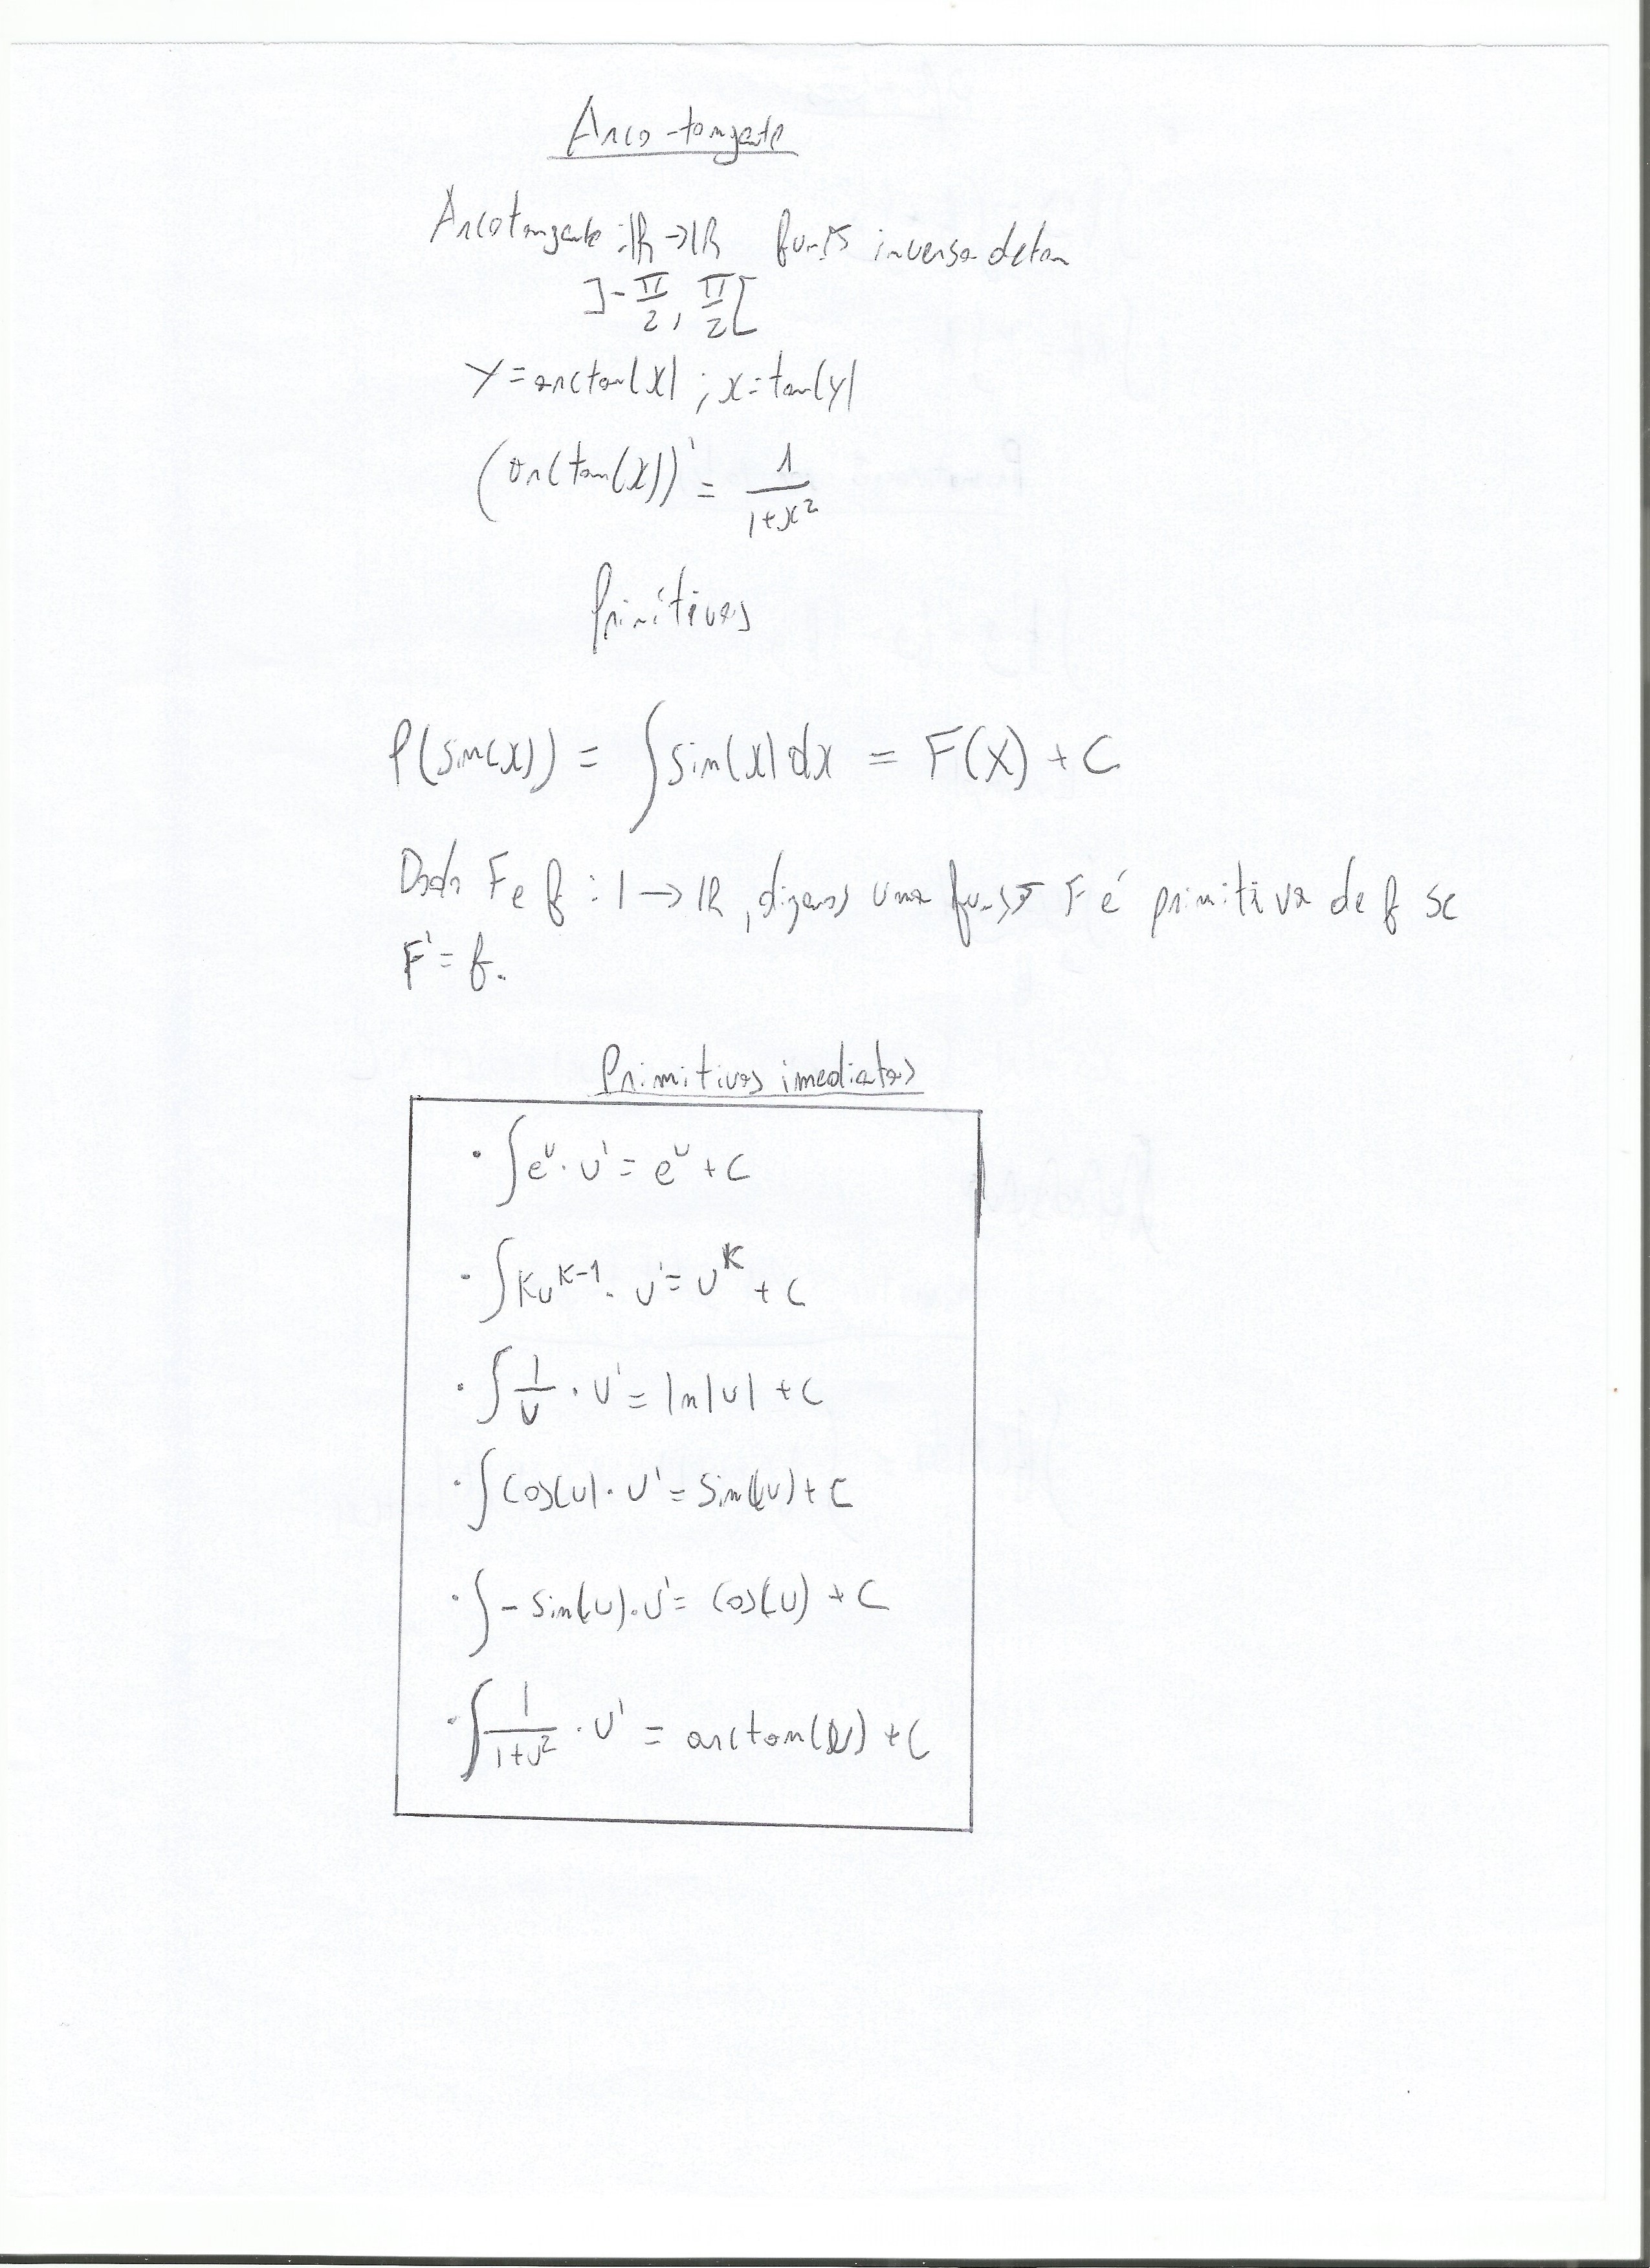 Arco-tangente
Arcotangente: ℝ→ℝ função inversa de tan
]-π/2, π/2[
y=arctan(x) ; x=tan(y)
(arctan(x))' = 1/(1+x²)
Primitivas
P(sin(x)) = ∫sin(x)dx = F(x) + C
Dada F e f : I → ℝ, digamos uma função F é primitiva de f se
F' = f.
Primitivas imediatas
· ∫e^u · u' = e^u + C
· ∫Ku^(K-1) · u' = u^K + C
· ∫1/u · u' = ln|u| + C
· ∫cos(u) · u' = sin(u) + C
· ∫-sin(u) · u' = cos(u) + C
· ∫1/(1+u²) · u' = arctan(u) + C